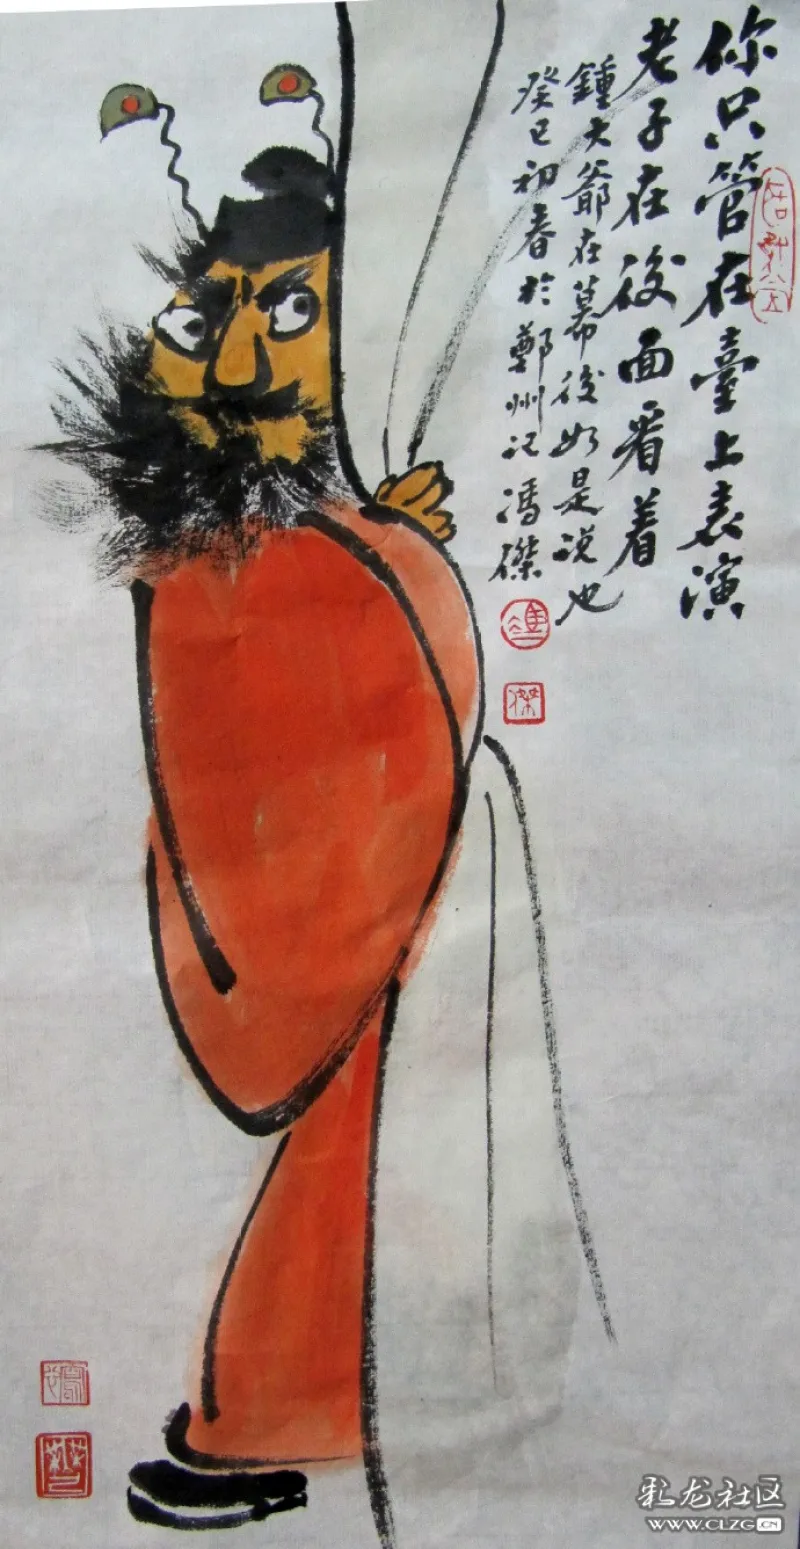 你只管在臺上表演
老子在後面看着
鍾大爺在幕後如是説也
癸巳初春於鄭州記馮傑
傑
彩龙社区
WWW.CLZG.CN